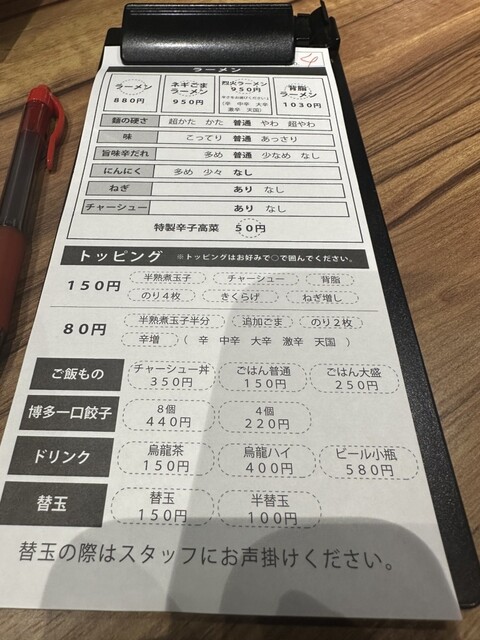 ラーメン
ラーメン 880円
ネギごまラーメン 950円
烈火ラーメン 950円
(辛 中辛 大辛 激辛 天国)
背脂ラーメン 1030円
麺の硬さ 超かた かた 普通 やわ 超やわ
味 こってり 普通 あっさり
旨味辛だれ 多め 普通 少なめ なし
にんにく 多め 少々 なし
ねぎ あり なし
チャーシュー あり なし
特製辛子高菜 50円
トッピング ※トッピングはお好みで○で囲んでください。
150円 半熟煮玉子 チャーシュー 背脂
のり4枚 きくらげ ねぎ増し
80円 半熟煮玉子半分 追加ごま のり2枚
辛増 ( 辛 中辛 大辛 激辛 天国 )
ご飯もの チャーシュー丼 350円 ごはん普通 150円 ごはん大盛 250円
博多一口餃子 8個 440円 4個 220円
ドリンク 烏龍茶 150円 烏龍ハイ 400円 ビール小瓶 580円
替玉 替玉 150円 半替玉 100円
替玉の際はスタッフにお声掛けください。